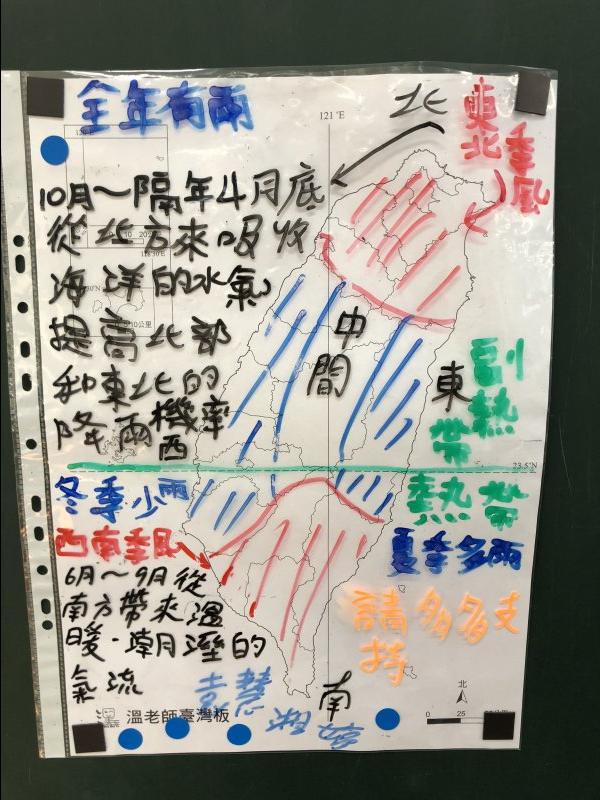 全年有雨
北
東北季風
121°E
10月～隔年4月底
從北方來吸收
海洋的水氣
提高北部
和東北的
降雨機率
中間
東
西
副熱帶
23.5°N
熱帶
冬季少雨
夏季多雨
西南季風
6月～9月從
南方帶來溫
暖、潮溼的
氣流
請多多支持
南
北
0 25
溫老師臺灣板